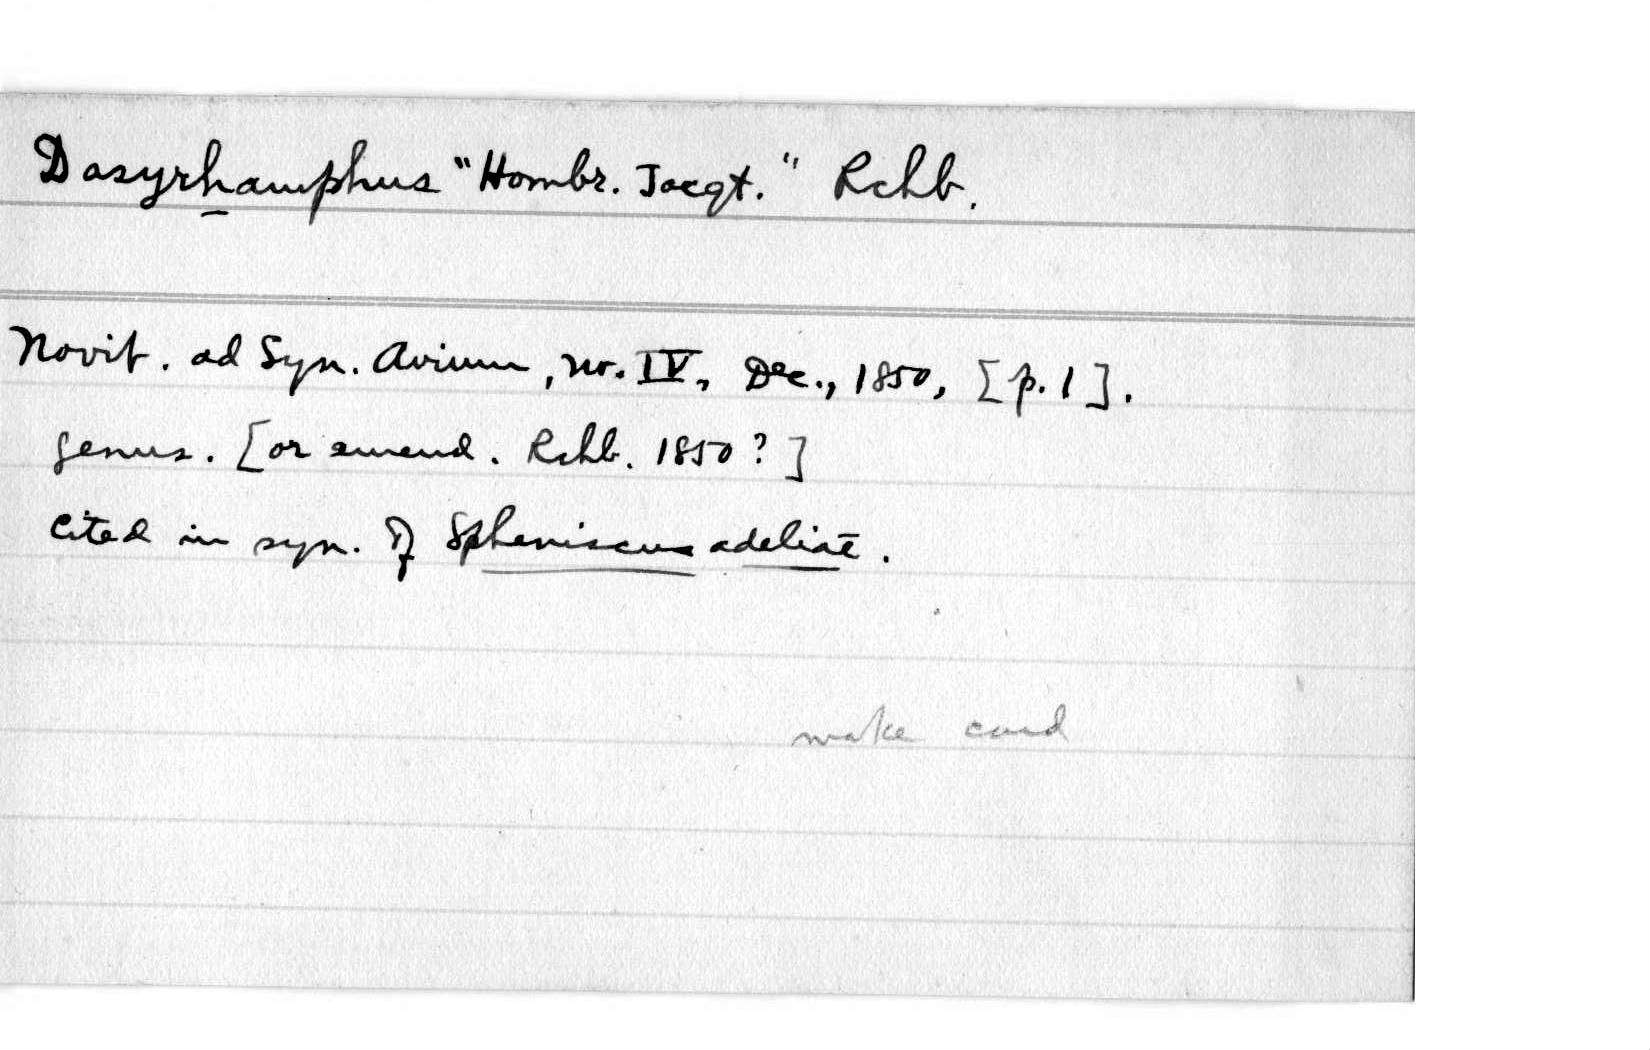 Dasyrhamphus "Hombr. Jacqt." Rchb.
Novit. ad Syn. Avium, no. IV, Dec., 1850, [p. 1].
genus. [or emend. Rchb. 1850?]
Cited in syn. of Spheniscus adeliae.
make card